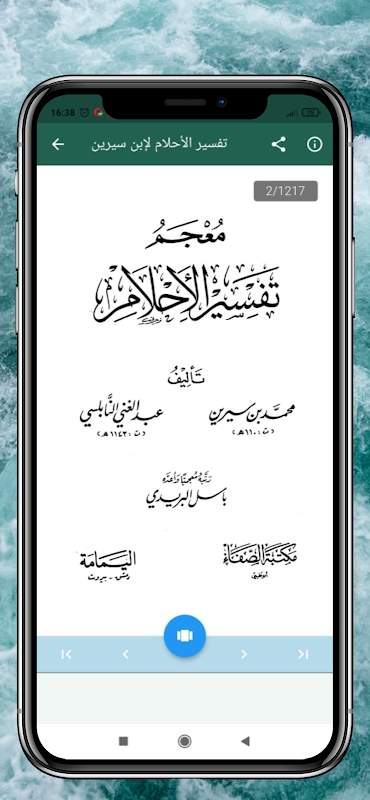 16:38
تفسير الأحلام لإبن سيرين
2/1217
مُعْجَمُ
تَفسِيْرِ الأَحْلَامِ
تَأليْفُ
محمَّد بن سيرين عبد الغني النَّابلسي
(ت: ١١٠هـ) (ت: ١١٤٣هـ)
رَتَّبَهُ مُعجميًّا وَأعدَّه
باسل البريدي
مكتبَة الصَّفاء اليَمامَة
أبوظبي دمشق - بيروت